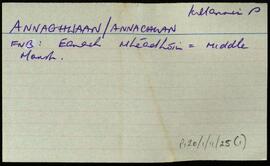 Killannin P
ANNAGHWAAN/ANNACHUAN
FNB: Eanach Mheadhóin = Middle
Marsh.
P120/1/1/25(1)